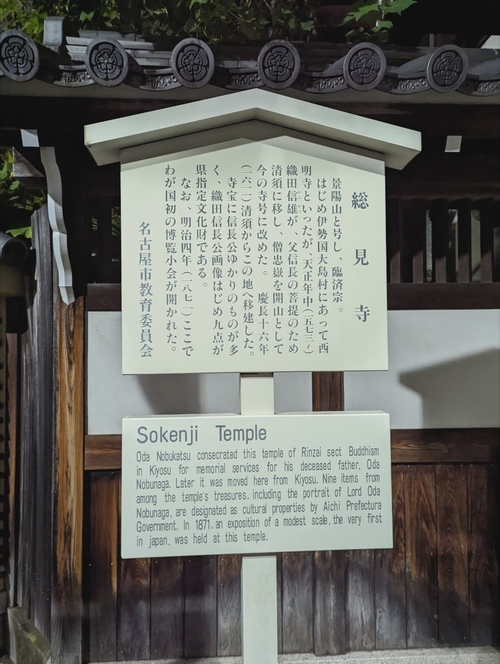 総見寺
景陽山と号し、臨済宗。
はじめ伊勢国大島村にあって西
明寺といったが、天正年中(一五七三~)
織田信雄が、父信長の菩提のため
清須に移し、僧忠嶽を開山として
今の寺号に改めた。慶長十六年
(一六一一)清須からこの地へ移建した。
寺宝に信長公ゆかりのものが多
く、織田信長公画像はじめ九点が
県指定文化財である。
なお、明治四年(一八七一)ここで
わが国初の博覧小会が開かれた。
名古屋市教育委員会
Sokenji Temple
Oda Nobukatsu consecrated this temple of Rinzai sect Buddhism
in Kiyosu for memorial services for his deceased father, Oda
Nobunaga. Later it was moved here from Kiyosu. Nine items from
among the temple's treasures, including the portrait of Lord Oda
Nobunaga, are designated as cultural properties by Aichi Prefectura
Government. In 1871, an exposition of a modest scale, the very first
in japan, was held at this temple.